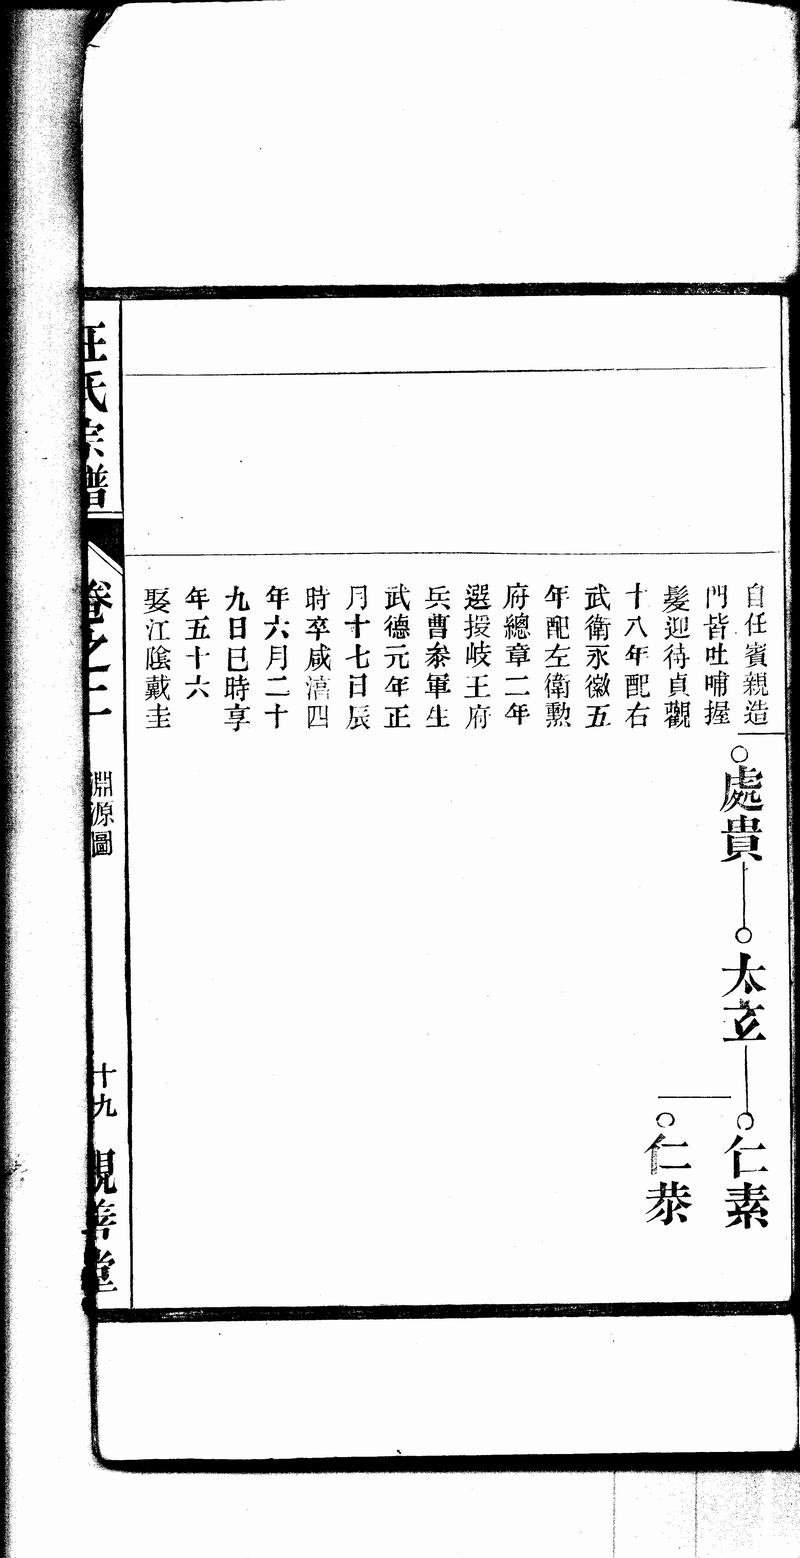 自任賓親造
門皆吐哺握
髮迎待貞觀
十八年配右
武衛永徽五
年配左衛勲
府總章二年
選授岐王府
兵曹叅軍生
武德元年正
月十七日辰
時卒咸淳四
年六月二十
九日巳時享
年五十六
娶江陰戴圭
處貴
太立
仁素
仁恭
汪氏宗譜
卷之二
淵源圖
十九
親善堂